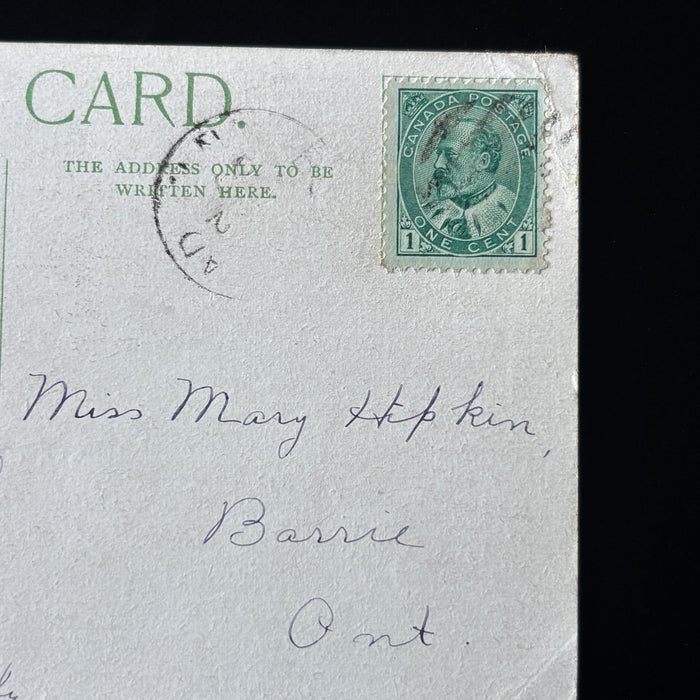 CARD.
THE ADDRESS ONLY TO BE
WRITTEN HERE.
CANADA POSTAGE
ONE CENT
1 1
Miss Mary Hipkin,
Barrie
Ont.